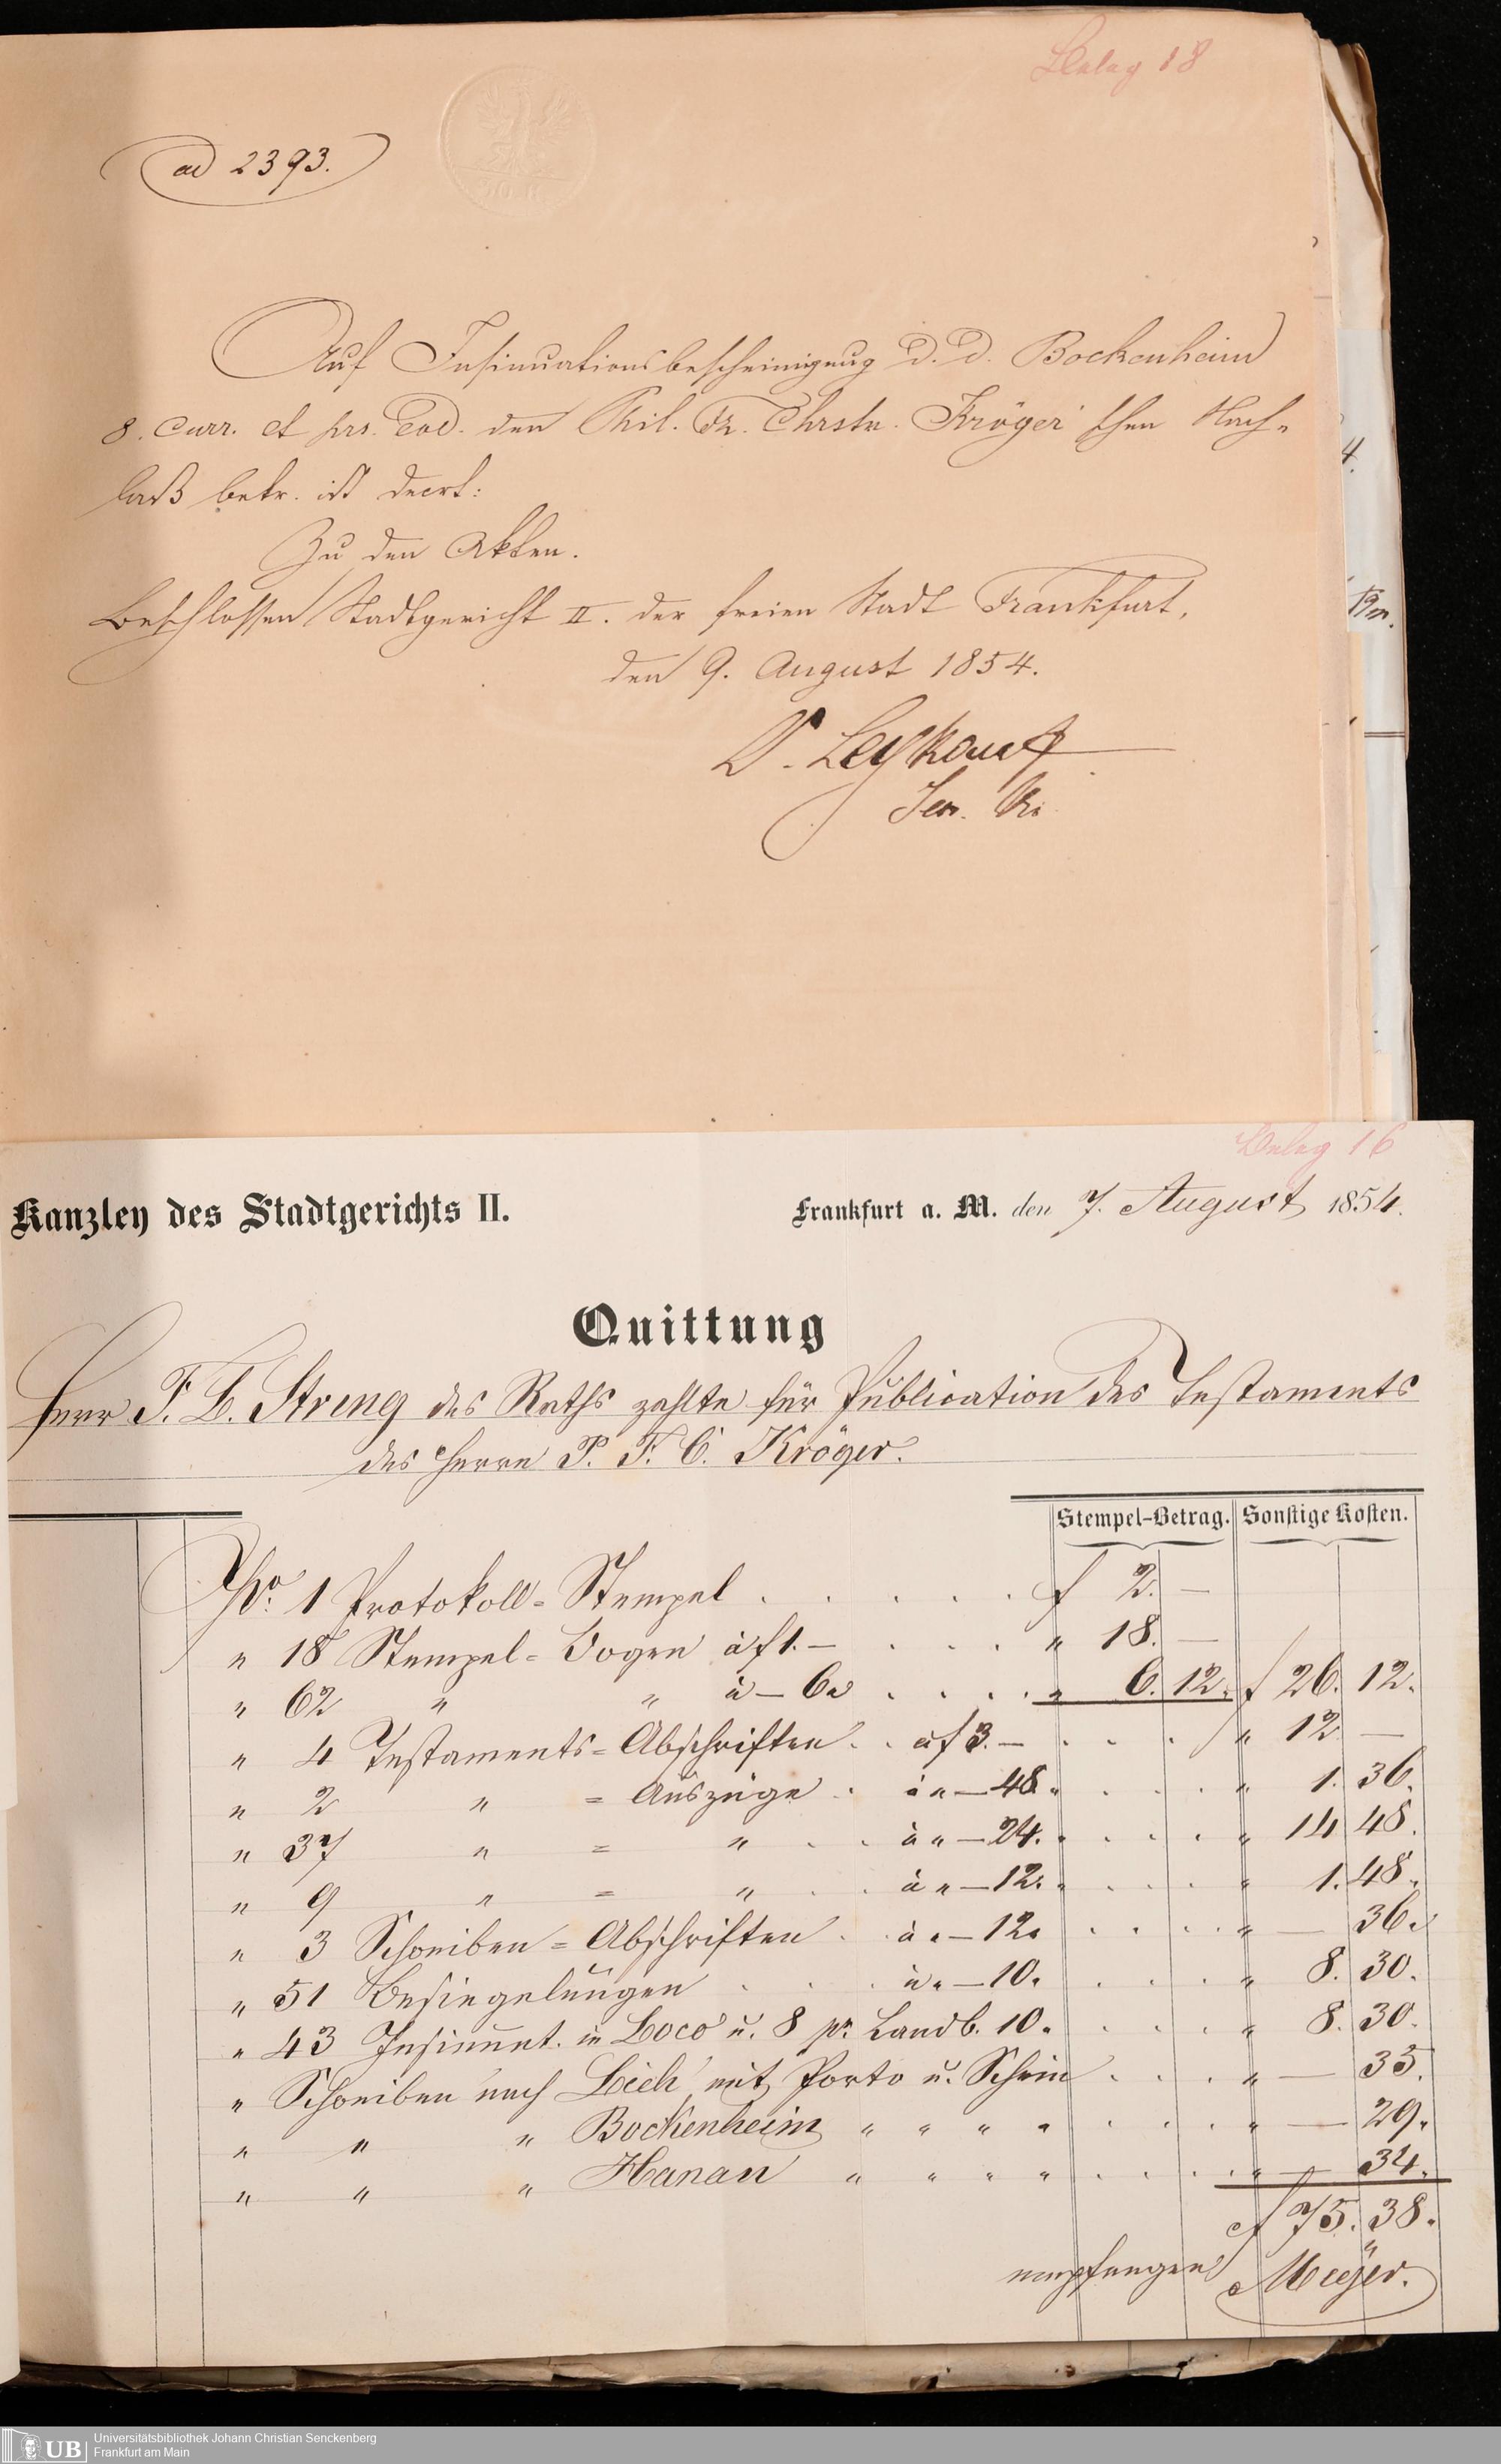 Belag 18
ad 2393.
Auf Insinuationsbescheinigung d. d. Bockenheim
8. curr. et prs. eod. den Phil. Fr. Chrstn. Kröger'schen Nach-
laß betr. ist decrt:
Zu den Akten.
Beschlossen Stadtgericht II. der freien Stadt Frankfurt,
den 9. August 1854.
Belag 16
Kanzley des Stadtgerichts II. Frankfurt a. M. den 7. August 1854.
Quittung
Herr F. B. Streng des Raths zahlte für Publication des Testaments
des Herrn P. F. C. Kröger.
Stempel-Betrag. Sonstige Kosten.
No. 1 Protokoll-Stempel . . . . . f 2. —
" 18 Stempel-Bogen à f 1. — . . . . " 18. —
" 62 " " à — 6. . . . . " 6. 12. f 26. 12.
" 4 Testaments-Abschriften . . à f 3. — . . . " 12 —
" 2 " = Auszüge . à " — 48. . . . " 1. 36.
" 37 " = " . . à " — 24. . . . " 14 48.
" 9 " = " . . à " — 12. . . . " 1. 48.
" 3 Schreiben-Abschriften . . à " — 12. . . . " — 36.
" 51 Besiegelungen . . . à " — 10. . . . " 8. 30.
" 43 Insinuat. in Loco u. 8 pr. Landb. 10. . . . " 8. 30.
" Schreiben nach Lich mit Porto u. Schein . . . " — 35.
" " " Bockenheim " " " " . . . " — 29.
" " " Hanau " " " " . . . " — 34.
f 75. 38.
empfangen Meÿer.
UB Universitätsbibliothek Johann Christian Senckenberg
Frankfurt am Main